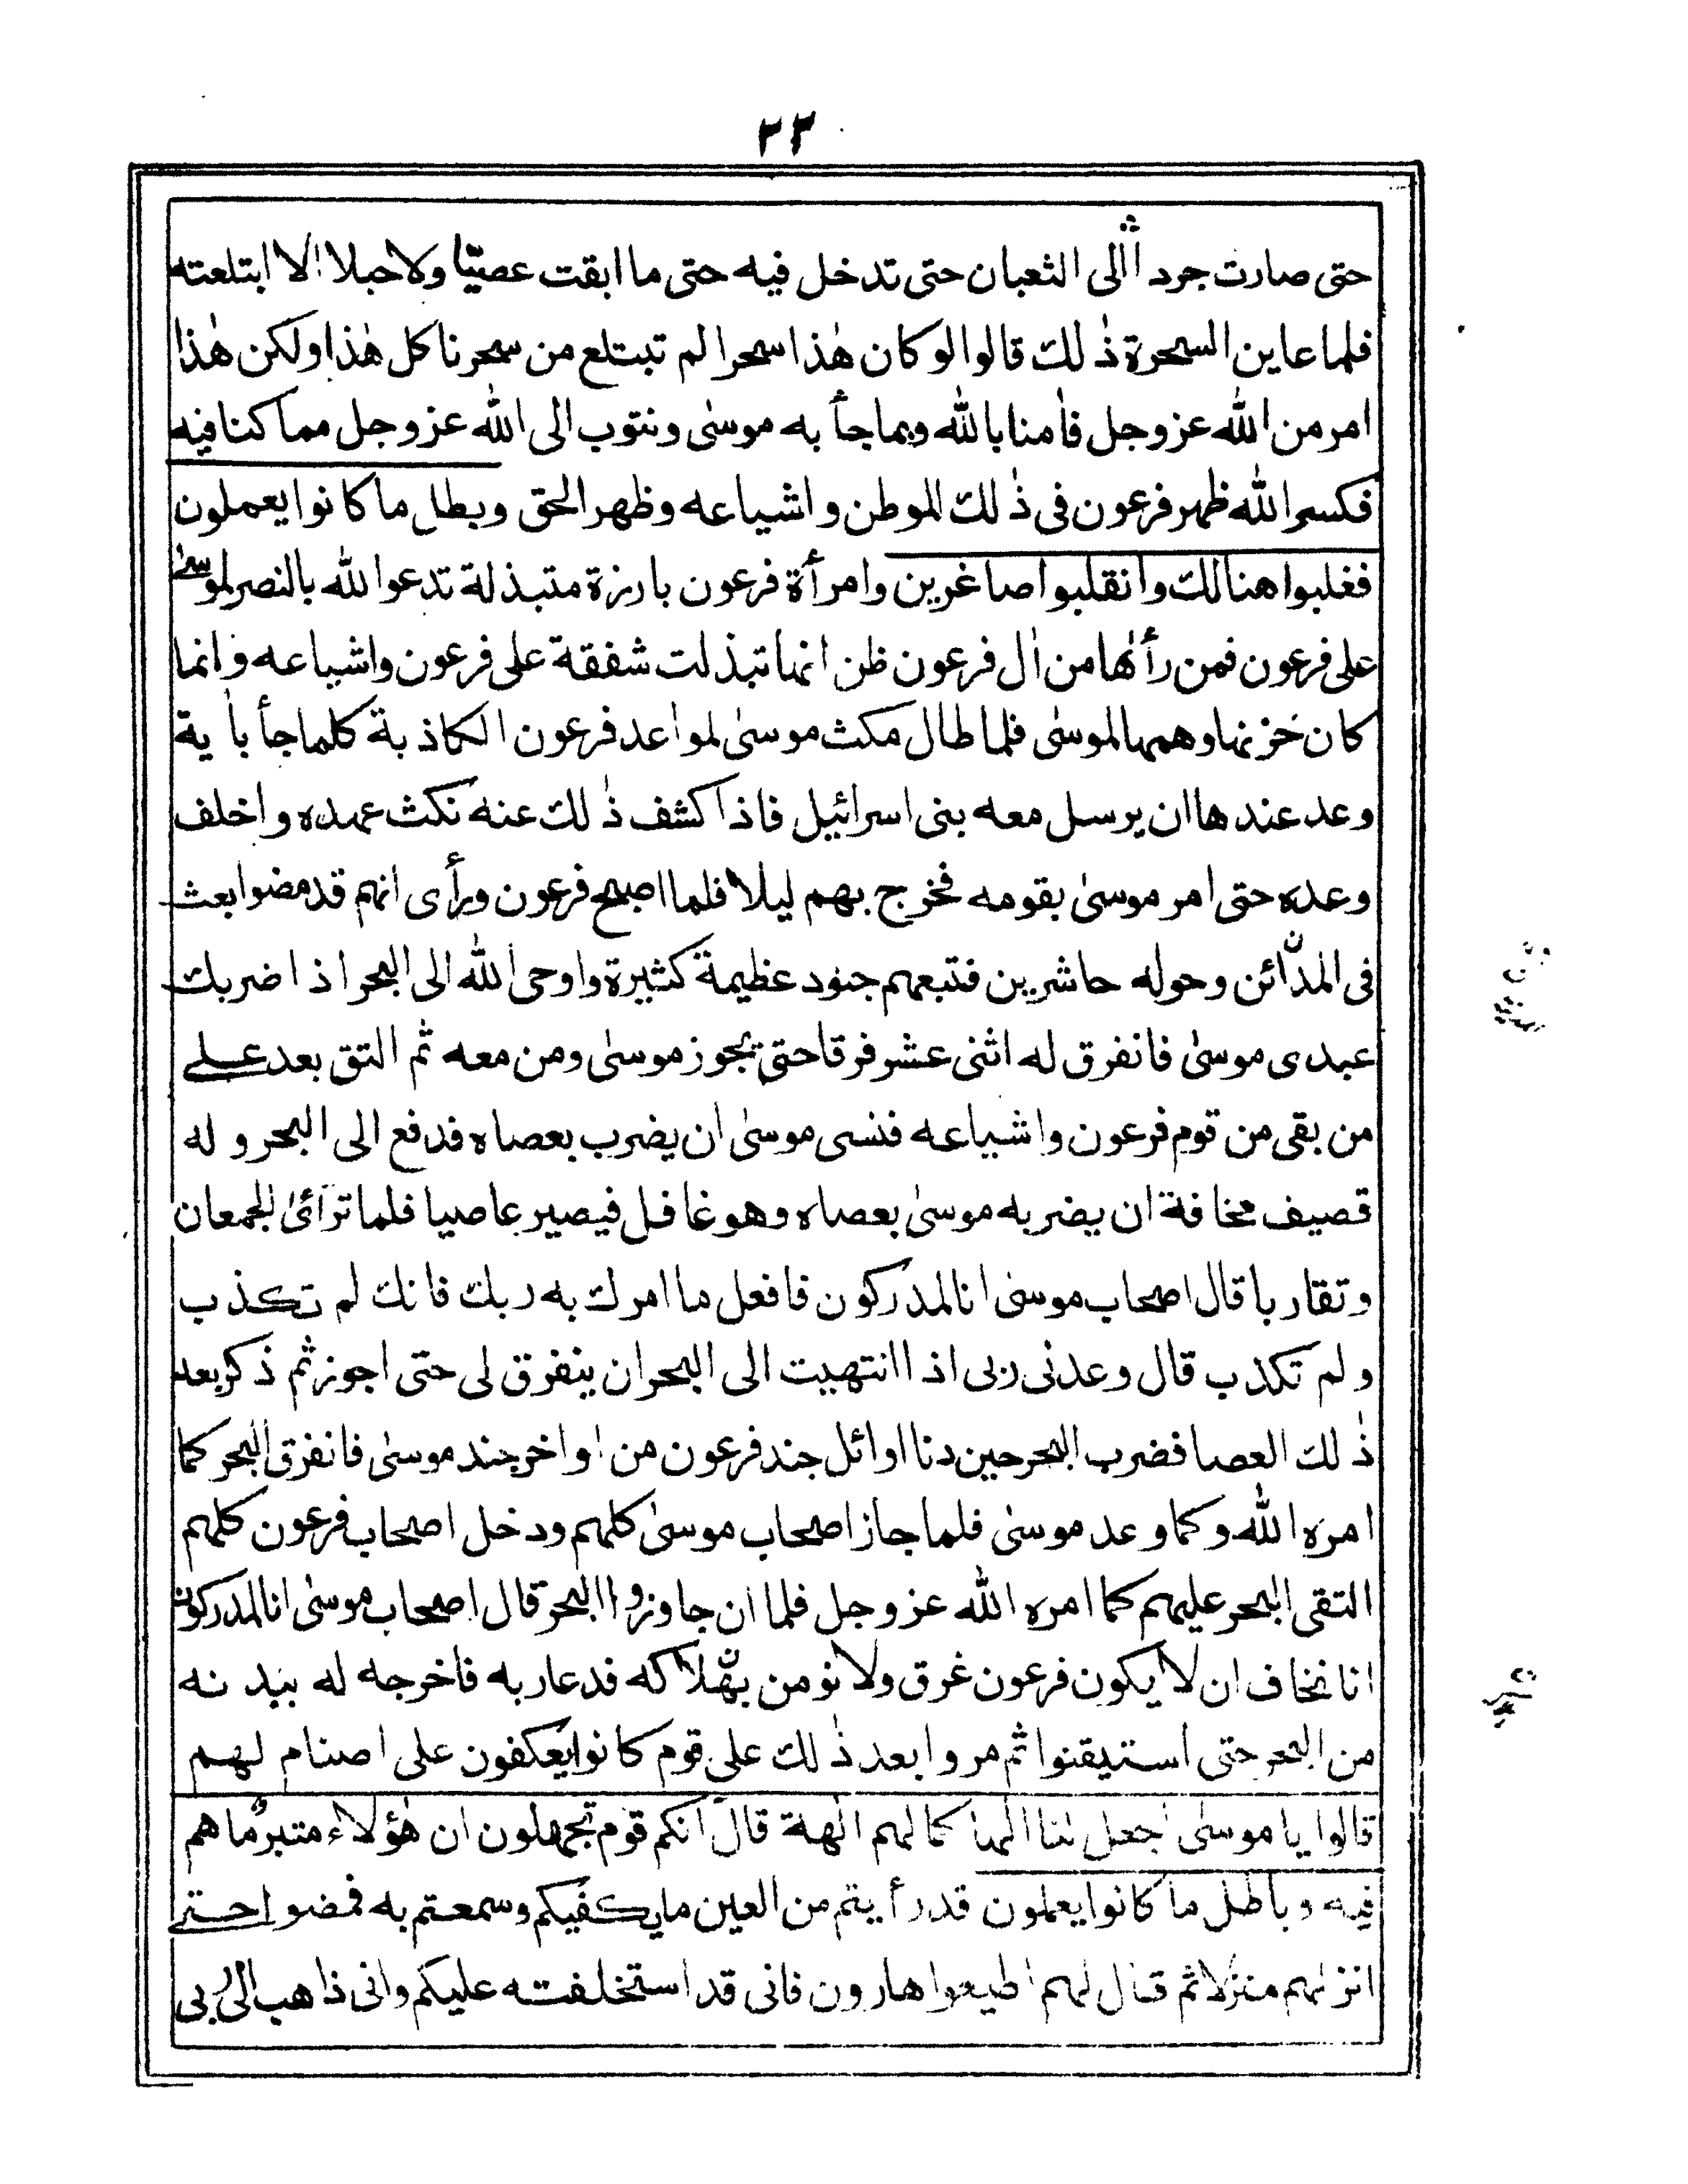 ٣٣
حتى صارت جردا الى الثعبان حتى تدخل فيه حتى ما ابقت عصيّا ولا حبلا الا ابتلعته
فلما عاين السحرة ذٰلك قالوا لو كان هٰذا سحرا لم تبتلع من سحرنا كل هٰذا ولكن هٰذا
امر من الله عز وجل فاٰمنا بالله وبما جأ به موسىٰ ونتوب الى الله عز وجل مما كنا فيه
فكسر الله ظهر فرعون فى ذٰلك الموطن و اشياعه وظهر الحق وبطل ما كانوا يعملون
فغلبوا هنالك وانقلبوا صاغرين وامرأة فرعون بارزة متبذلة تدعوا لله بالنصر لموسىٰ
على فرعون فمن رأٰها من اٰل فرعون ظن انها تبذلت شفقة على فرعون واشياعه وانما
كان حزنها وهمها لموسىٰ فلما طال مكث موسىٰ لمواعد فرعون الكاذبة كلما جأ باٰية
وعد عندها ان يرسل معه بنى اسرائيل فاذا كشف ذٰلك عنه نكث عهده واخلف
وعده حتى امر موسىٰ بقومه فخرج بهم ليلا فلما اصبح فرعون ورأى انهم قد مضوا بعث
فى المدائن وحوله حاشرين فتبعهم جنود عظيمة كثيرة واوحى الله الى البحر اذا ضربك
عبدى موسىٰ فانفرق له اثنى عشر فرقا حتى يجوز موسىٰ ومن معه ثم التق بعد علے
من بقى من قوم فرعون واشياعه فنسى موسىٰ ان يضرب بعصاه فدفع الى البحر و له
قصيف مخافة ان يضربه موسىٰ بعصاه وهو غافل فيصير عاصيا فلما ترآئىٰ الجمعان
وتقاربا قال اصحاب موسىٰ انا لمدركون فافعل ما امرك به ربك فانك لم تكذب
ولم تكذب قال وعدنى ربى اذا انتهيت الى البحر ان ينفرق لى حتى اجوز ثم ذكر بعد
ذٰلك العصا فضرب البحر حين دنا اوائل جند فرعون من اواخر جند موسىٰ فانفرق البحر كما
امره الله وكما وعد موسىٰ فلما جاز اصحاب موسىٰ كلهم ودخل اصحاب فرعون كلهم
التقى البحر عليهم كما امره الله عز وجل فلما ان جاوزوا البحر قال اصحاب موسىٰ انا لمدركون
انا نخاف ان لا يكون فرعون غرق ولا نومن بهلاكه فدعا ربه فاخرجه له ببدنه
من البحر حتى استيقنوا ثم مروا بعد ذٰلك على قوم كانوا يعكفون على اصنام لهم
قالوا يا موسىٰ اجعل لنا الٰها كما لهم اٰلهة قال انكم قوم تجهلون ان هٰؤلاء متبر ما هم
فيه وباطل ما كانوا يعملون قد رأيتم من العين ما يكفيكم وسمعتم به فمضوا حتے
انزلهم منزلا ثم قال لهم اطيعوا هارون فانى قد استخلفته عليكم وانى ذاهب الى ربى